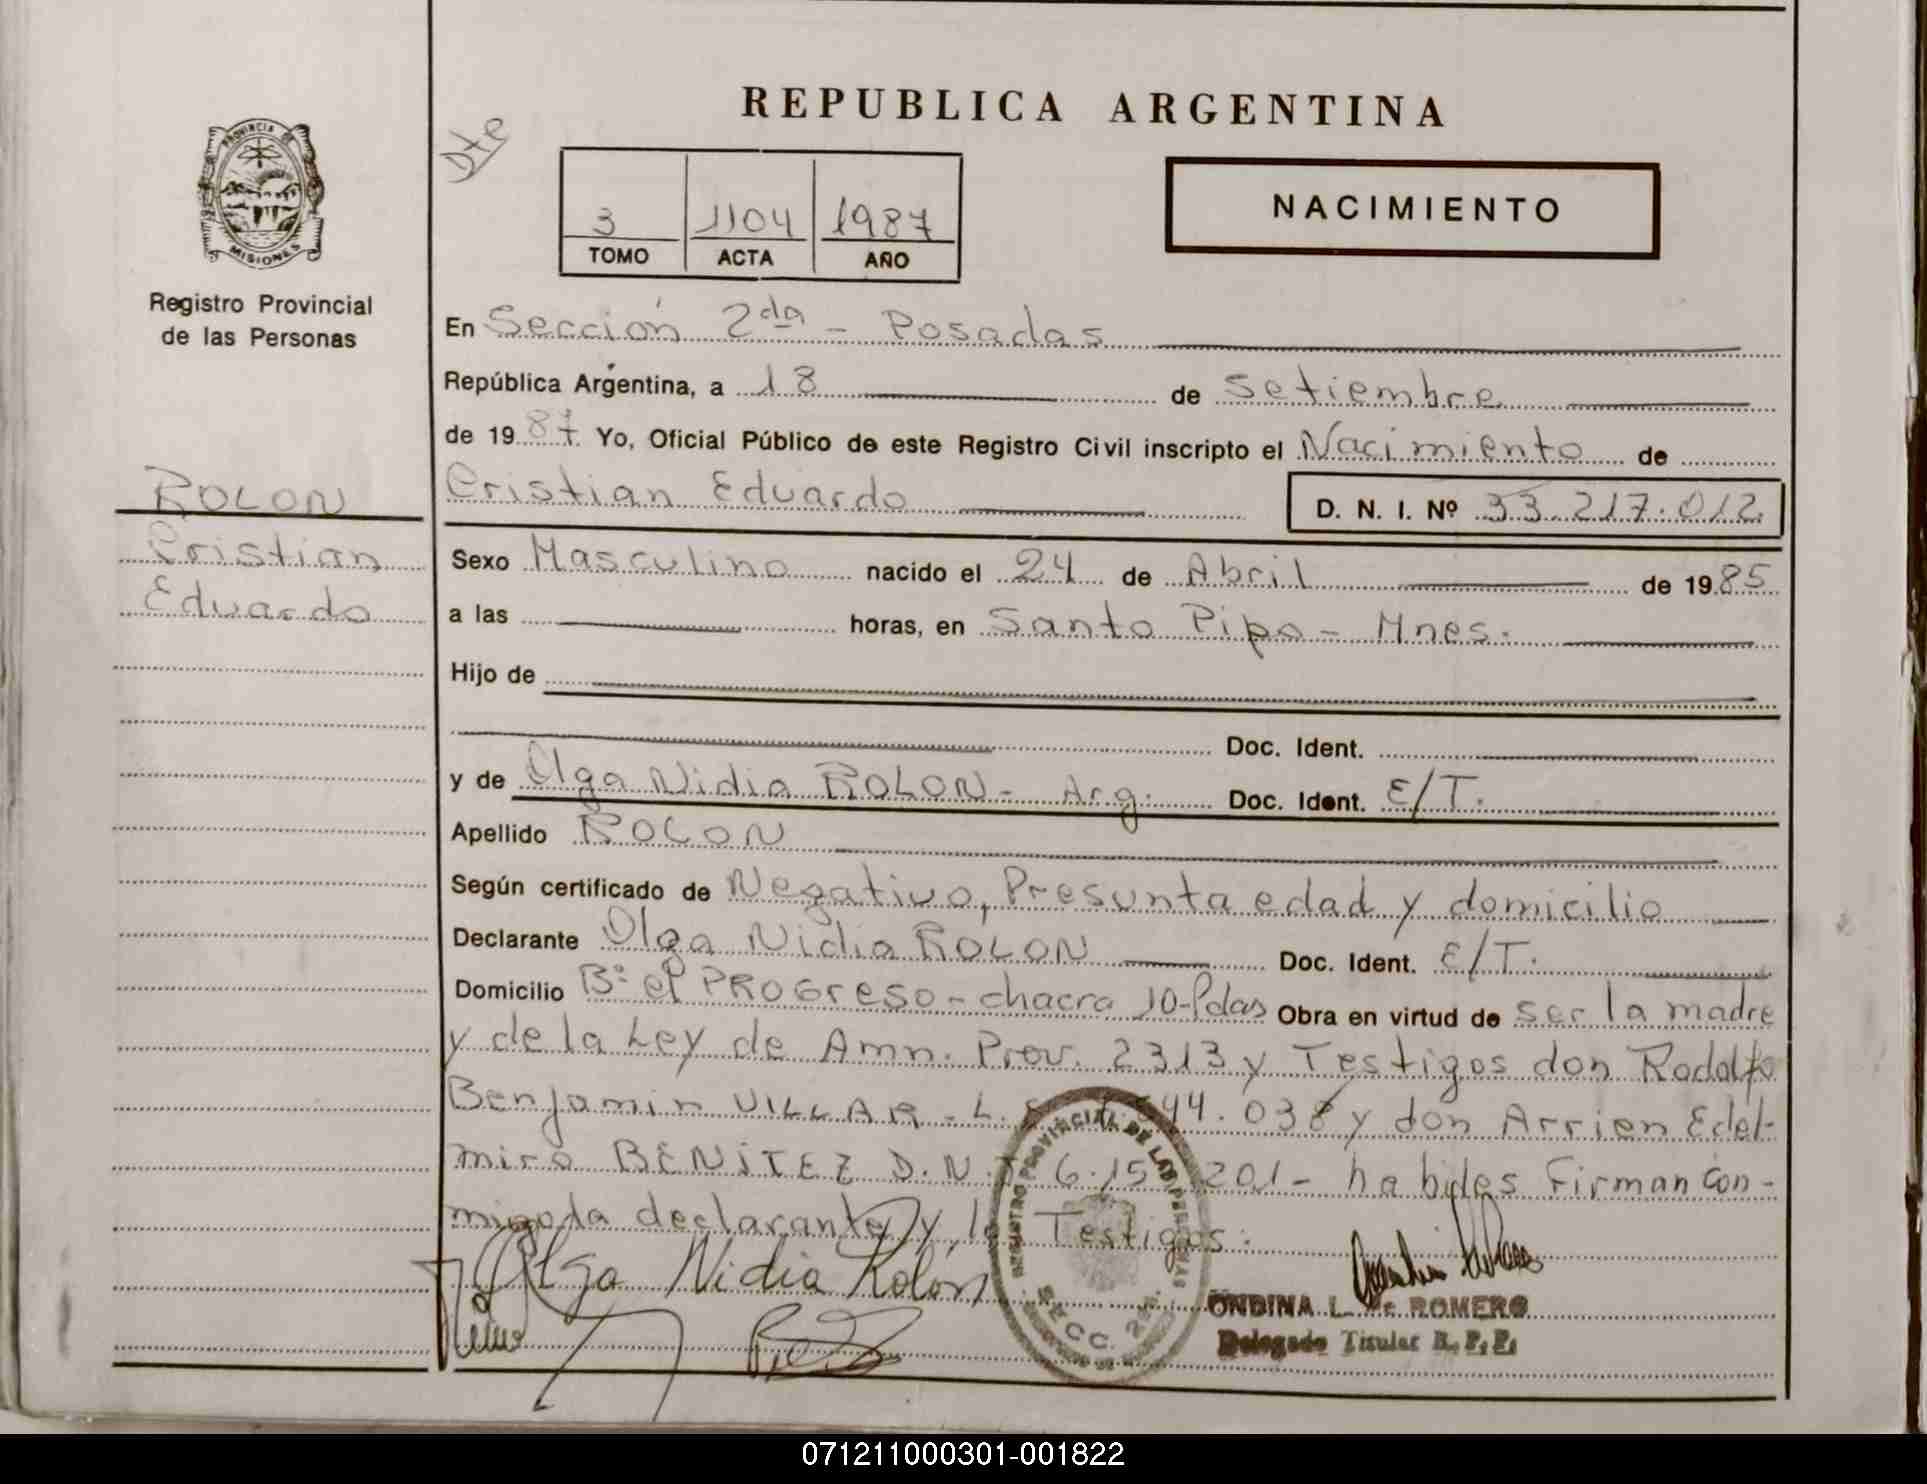 REPUBLICA ARGENTINA
Dte
PROVINCIA DE
MISIONES
Registro Provincial
de las Personas
3 1104 1987
TOMO ACTA AÑO
NACIMIENTO
En Sección 2da - Posadas
República Argentina, a 18 de Setiembre
de 1987. Yo, Oficial Público de este Registro Civil inscripto el Nacimiento de
Cristian Eduardo D. N. I. Nº 33.217.012.
ROLON
Cristian
Eduardo
Sexo Masculino nacido el 24 de Abril de 1985
a las horas, en Santo Pipo - Mnes.
Hijo de
Doc. Ident.
y de Olga Nidia ROLON - Arg. Doc. Ident. E/T.
Apellido ROLON
Según certificado de Negativo, Presunta edad y domicilio
Declarante Olga Nidia ROLON Doc. Ident. E/T.
Domicilio Bº el PROGreso - chacra 10-Pdas Obra en virtud de ser la madre
y de la Ley de Amn. Prov. 2313 y Testigos don Rodolfo
Benjamin VILLAR - L. 544.038 y don Arrien Edel-
miro BENITEZ D.N. 6.15 201 - habiles Firman con-
migo la declarante y Testigos.
Olga Nidia Rolón
REGISTRO PROVINCIAL DE LAS PERSONAS
SECC. 2da.
ONDINA L. de ROMERO
Delegado Titular R. P. P.
071211000301-001822